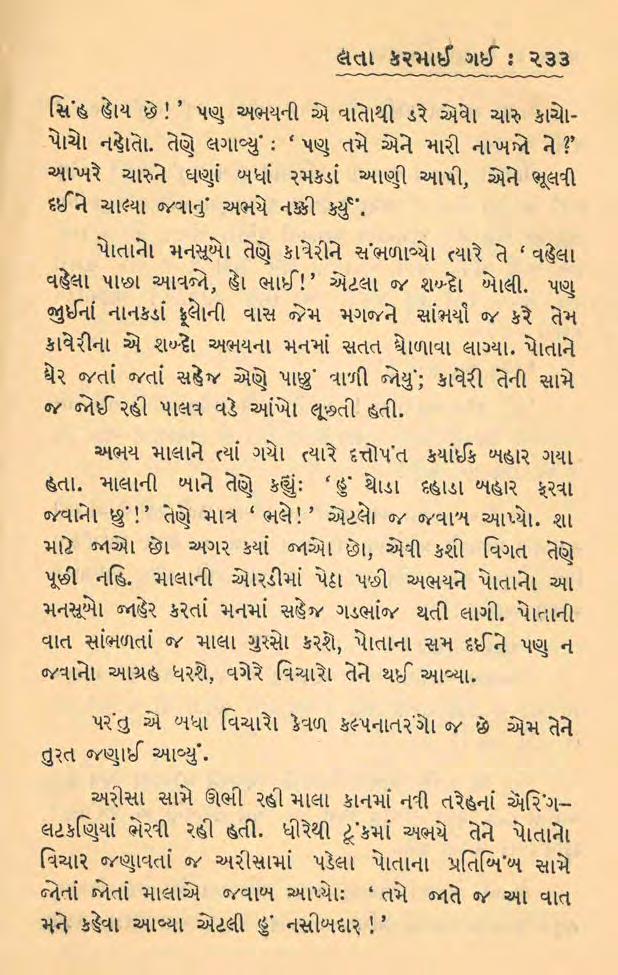 લતા કરમાઈ ગઈ : ૨૩૩
સિંહ હોય છે!’ પણ અભયની એ વાતોથી ડરે એવો ચારુ કાચો-
પોચો નહોતો. તેણે લગાવ્યું : ‘પણ તમે એને મારી નાખજો ને ?’
આખરે ચારુને ઘણાં બધાં રમકડાં આણી આપી, એને ભૂલવી
દઈને ચાલ્યા જવાનું અભયે નક્કી કર્યું.
પોતાનો મનસૂબો તેણે કાવેરીને સંભળાવ્યો ત્યારે તે ‘વહેલા
વહેલા પાછા આવજો, હો ભાઈ!’ એટલા જ શબ્દો બોલી. પણ
જુઈનાં નાનકડાં ફૂલોની વાસ જેમ મગજને સાંભર્યાં જ કરે તેમ
કાવેરીના એ શબ્દો અભયના મનમાં સતત ઘોળાવા લાગ્યા. પોતાને
ઘેર જતાં જતાં સહેજ એણે પાછું વાળી જોયું; કાવેરી તેની સામે
જ જોઈ રહી પાલવ વડે આંખો લૂછતી હતી.
અભય માલાને ત્યાં ગયો ત્યારે દત્તોપંત કયાંઈક બહાર ગયા
હતા. માલાની બાને તેણે કહ્યું: ‘હું થોડા દહાડા બહાર ફરવા
જવાનો છું!’ તેણે માત્ર ‘ભલે!’ એટલો જ જવાબ આપ્યો. શા
માટે જાઓ છો અગર કયાં જાઓ છો, એવી કશી વિગત તેણે
પૂછી નહિ. માલાની ઓરડીમાં પેઠા પછી અભયને પોતાનો આ
મનસૂબો જાહેર કરતાં મનમાં સહેજ ગડભાંજ થતી લાગી. પોતાની
વાત સાંભળતાં જ માલા ગુસ્સો કરશે, પોતાના સમ દઈને પણ ન
જવાનો આગ્રહ ધરશે, વગેરે વિચારો તેને થઈ આવ્યા.
પરંતુ એ બધા વિચારો કેવળ કલ્પનાતરંગો જ છે એમ તેને
તુરત જણાઈ આવ્યું.
અરીસા સામે ઊભી રહી માલા કાનમાં નવી તરેહનાં ઍરિંગ–
લટકણિયાં ભેરવી રહી હતી. ધીરેથી ટૂંકમાં અભયે તેને પોતાનો
વિચાર જણાવતાં જ અરીસામાં પડેલા પોતાના પ્રતિબિંબ સામે
જોતાં જોતાં માલાએ જવાબ આપ્યો: ‘તમે જાતે જ આ વાત
મને કહેવા આવ્યા એટલી હું નસીબદાર !’